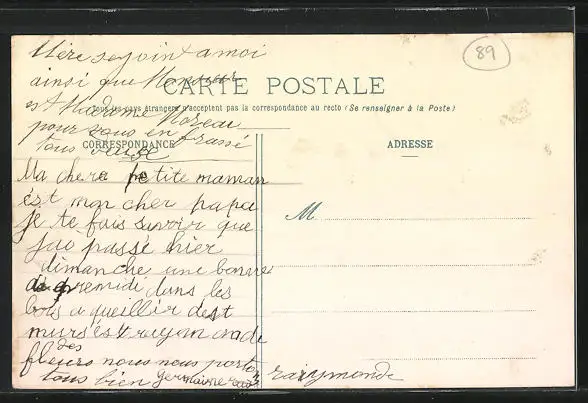 Mère se joint a moi
ainsi que Monsieur
CARTE POSTALE
est Madame Moreau
Tous les pays étrangers n'acceptent pas la correspondance au recto (Se renseigner à la Poste)
pour vous en brassé
tous
CORRESPONDANCE
ADRESSE
89
Ma chere petite maman
ést mon cher papa
je te fais savoir que
jai passé hier
dimanche une bonne
apremidé dans les
bois a queillir dest
murs ést
des
fleurs nous nous porton
tous bien germaine
raymonde
M